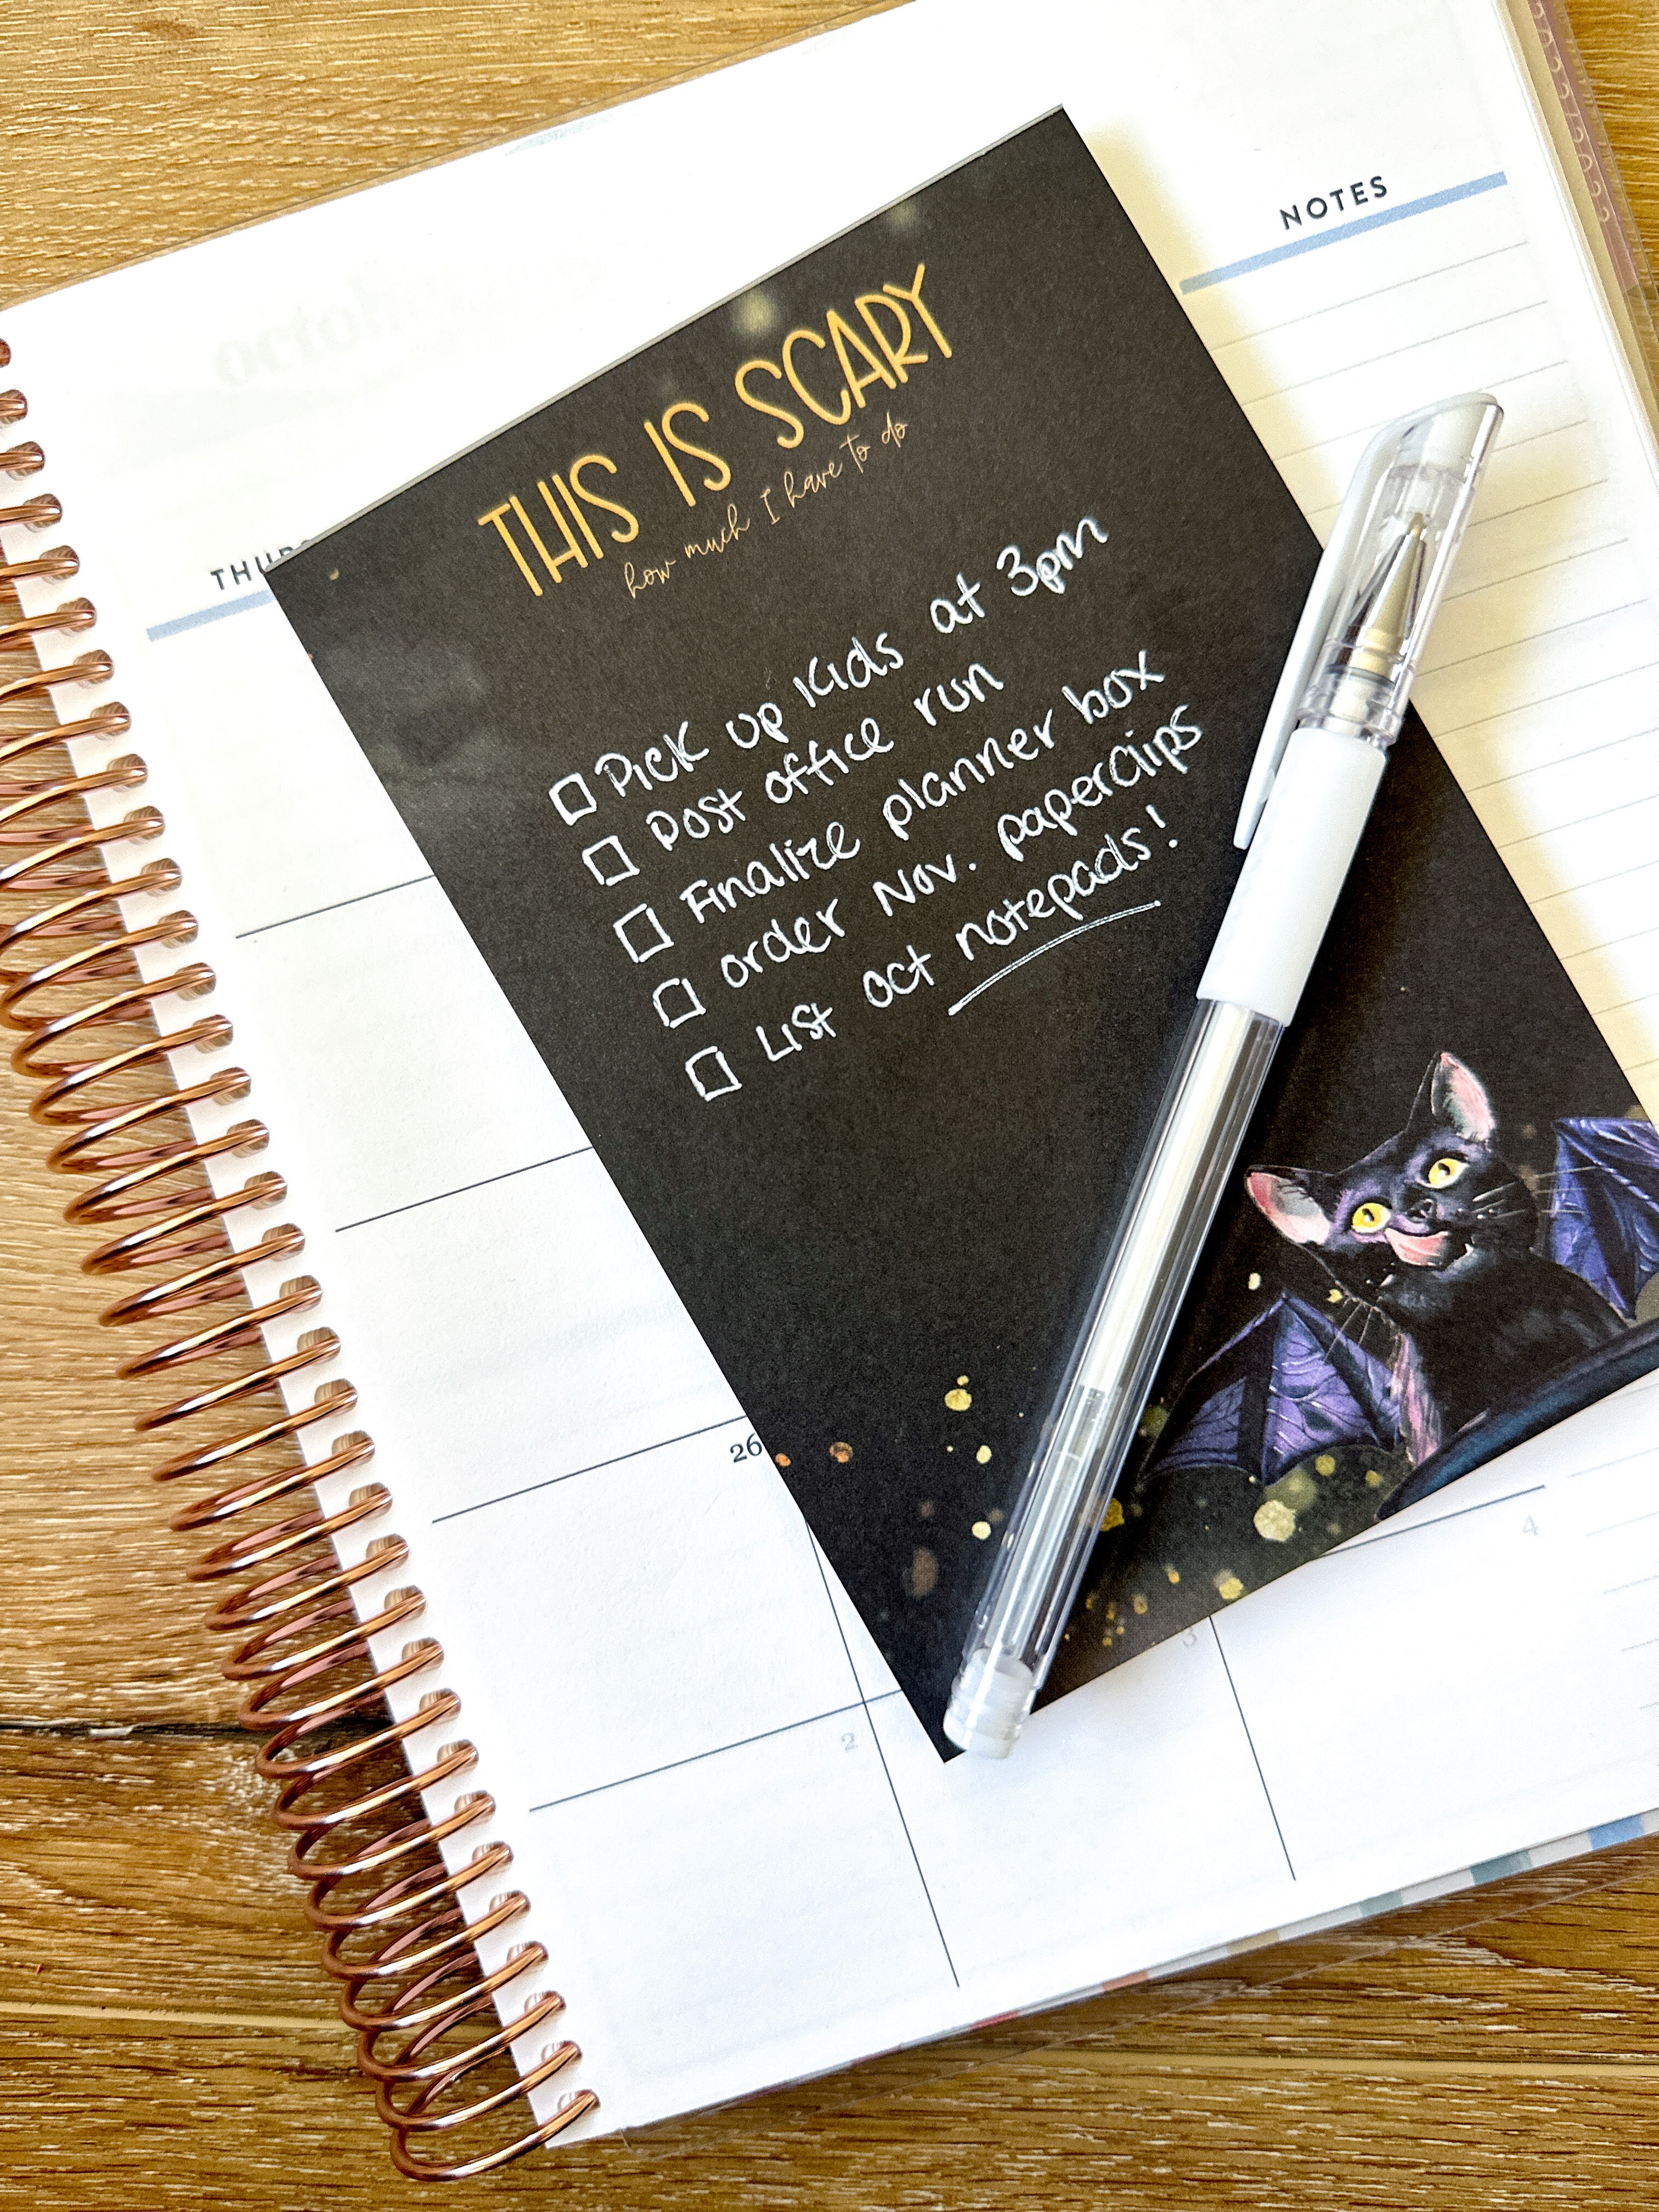 NOTES
THIS IS SCARY
how much I have to do
Pick up Kids at 3pm
Post office run
Finalize planner box
order Nov. paperclips
List oct notepads!
26
4
3
2